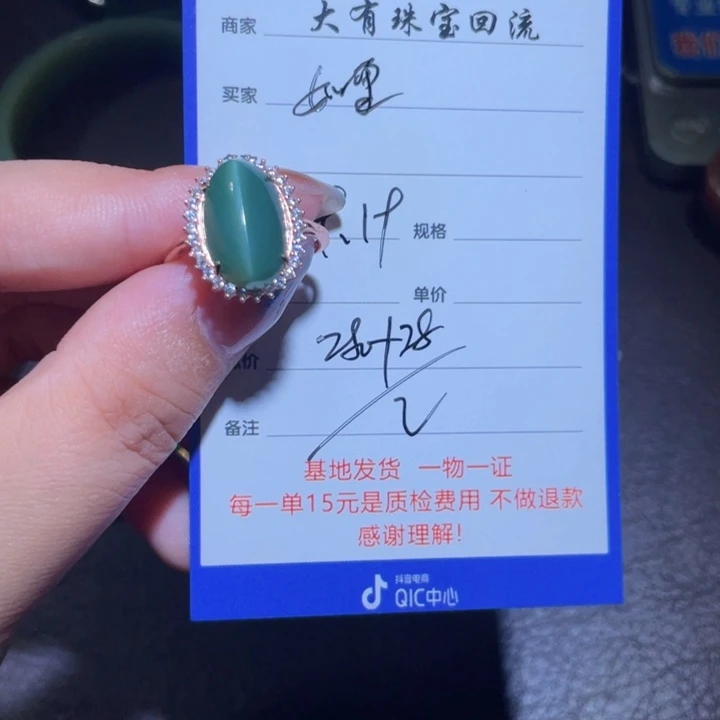 商家 大有珠宝回流
买家
规格
单价
价 280+28
备注 2
基地发货 一物一证
每一单15元是质检费用 不做退款
感谢理解!
抖音电商
QIC中心